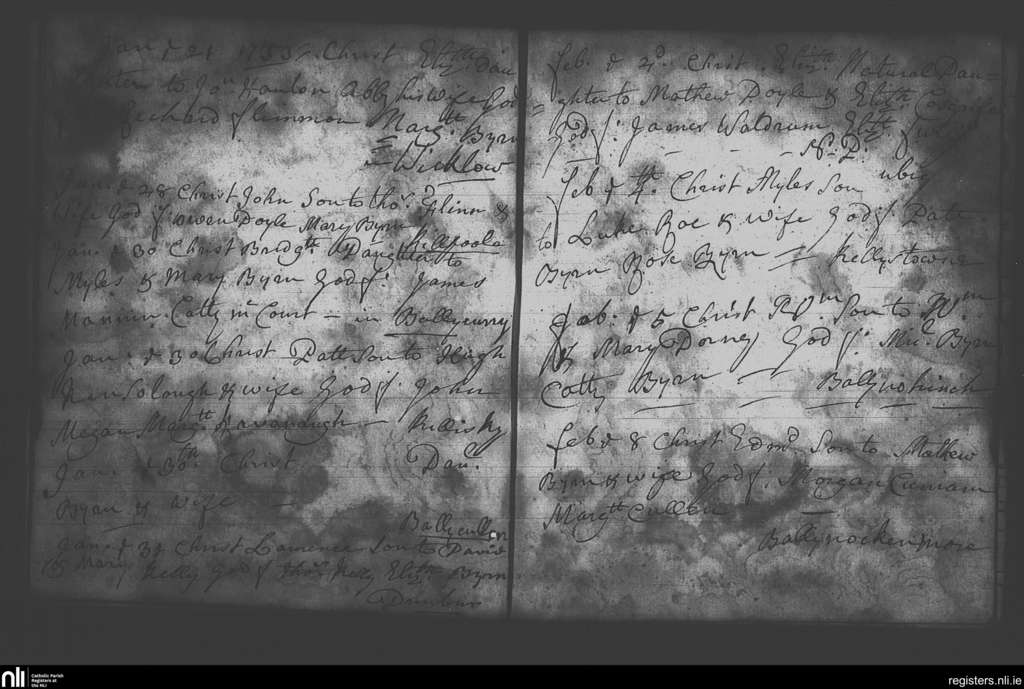 Jan: & 21 1753: Christ Elizth Dau
ghter to Jan Hanlon Abby his wife God
Richard flemmon Margtt Byrn
Wicklow
Jan: & 28 Christ John Son to thos. Glinn &
Wife God f: owen Doyle Mary Byrn
Killtoola
Jan: & 30 Christ Bridgtt Daughter to
Myles & Mary Byrn God f: James
Mannin Catty mc Court - in Ballycurry
Jan: & 30 Christ Patt Son to Hugh
& wife God f: John
Megan Margtt Kavanaugh - Killisky
Jan: & 30th Christ Dan:
Byrn & wife
Ballycullen
Jan: & 31 Christ Laurence Son to David
& Mary Kelly God f thos Kelly Elizth Byrn
Dunbur
feb. & 2d. Christ Elizth. Natural Dau=
ghter to Mathew Doyle & Elizth
God f: James Waldrum Elizth
N. P.
ubig
feb & 4. Christ Myles Son
to Luke Roe & wife God f. Patt
Byrn Rose Byrn = Kellystown
feb: & 5 Christ Wm. Son to Wm
& Mary Dorney God f: Mic. Byrn
Catty Byrn - Ballynohinch
feb & 8 Christ Edmd Son to Mathew
Byrn & wife God f. Morgan
Margtt Cullen
Ballynockenmore
nli
Catholic Parish
Registers at
the NLI
registers.nli.ie